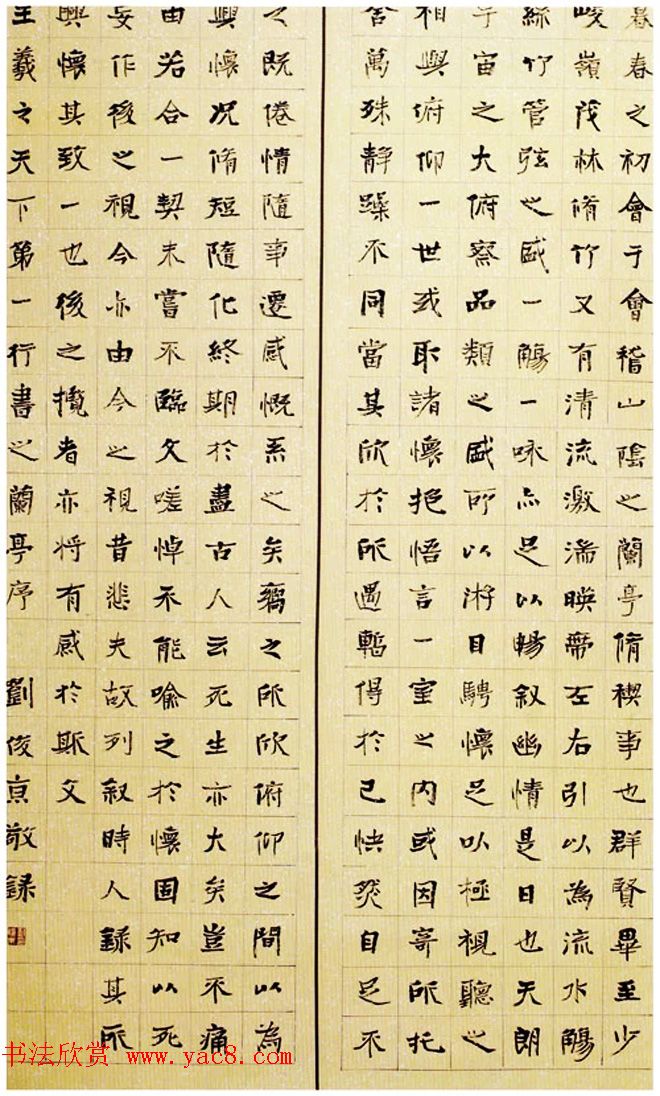 暮春之初會于會稽山陰之蘭亭脩禊事也群賢畢至少
峻嶺茂林脩竹又有清流激湍暎帶左右引以為流水觴
絲竹管弦之盛一觴一咏亦足以暢叙幽情是日也天朗
宇宙之大俯察品類之盛所以游目騁懷足以極視聽之
相與俯仰一世或取諸懷抱悟言一室之內或因寄所托
舍萬殊靜躁不同當其欣於所遇暫得於己快然自足不
之既倦情隨事遷感慨系之矣嚮之所欣俯仰之間以為
興懷况脩短隨化終期於盡古人云死生亦大矣豈不痛
由若合一契未嘗不臨文嗟悼不能喻之於懷固知以死
妄作後之視今亦由今之視昔悲夫故列叙時人錄其所
興懷其致一也後之攬者亦將有感於斯文
王羲之天下第一行書之蘭亭序 劉俊京敬錄
书法欣赏 www.yac8.com